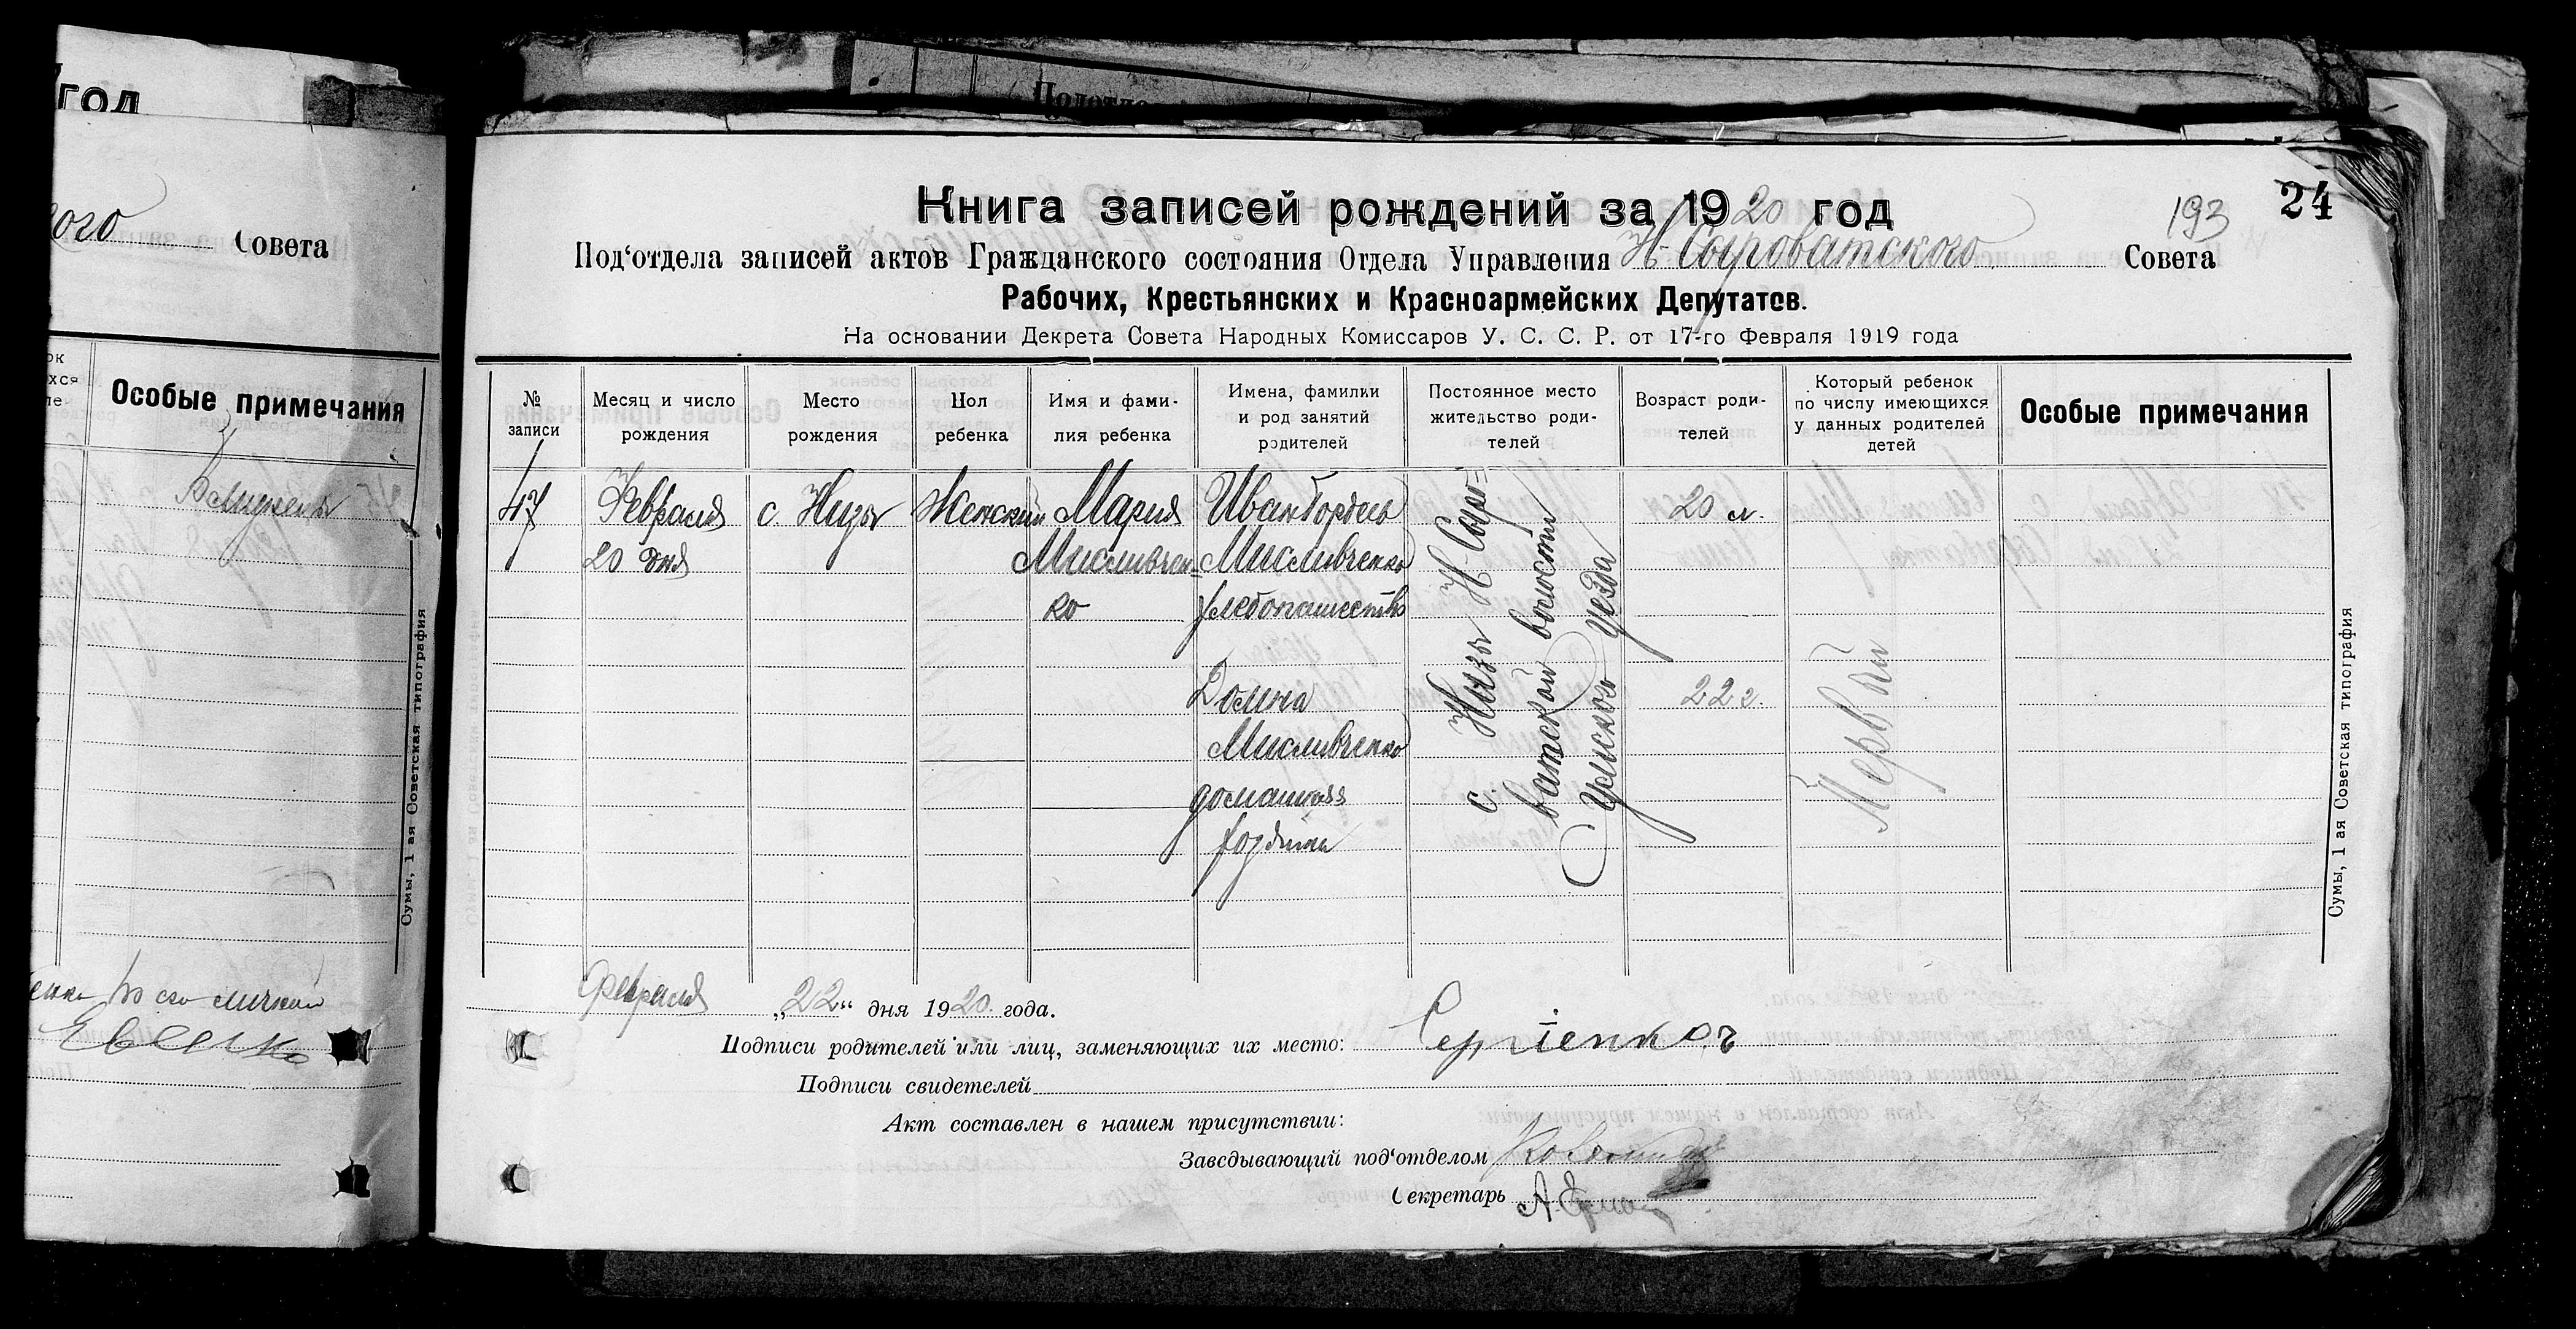 год
ого Совета
Особые примечания
Сумы, 1 ая Советская типография
Подотде
24
193
Книга записей рождений за 1920 год
Под‘отдела записей актов Гражданского состояния Отдела Управления Н Сыроватского Совета
Рабочих, Крестьянских и Красноармейских Депутатов.
На основании Декрета Совета Народных Комиссаров У. С. С. Р. от 17-го Февраля 1919 года
№ записи
Месяц и число рождения
Место рождения
Пол ребенка
Имя и фамилия ребенка
Имена, фамилки и род занятий родителей
Постоянное место жительство родителей
Возраст родителей
Который ребенок по числу имеющихся у данных родителей детей
Особые примечания
47
Февраля
20 дня
с Низы
Женский
Мария
Мисливчен-
ко
Иван
Мисливченко
хлебопашество
Домна
Мисливченко
домашняя
с. Низы Н Сыро=
ватской волости
Сумского уезда
20 л.
22 г.
Первый
Сумы, 1 ая Советская типография
Февраля „22“ дня 1920 года.
Подписи родителей или лиц, заменяющих их место: Сергіенко
Подписи свидетелей
Акт составлен в нашем присутствии:
Заведывающий под‘отделом
Секретарь